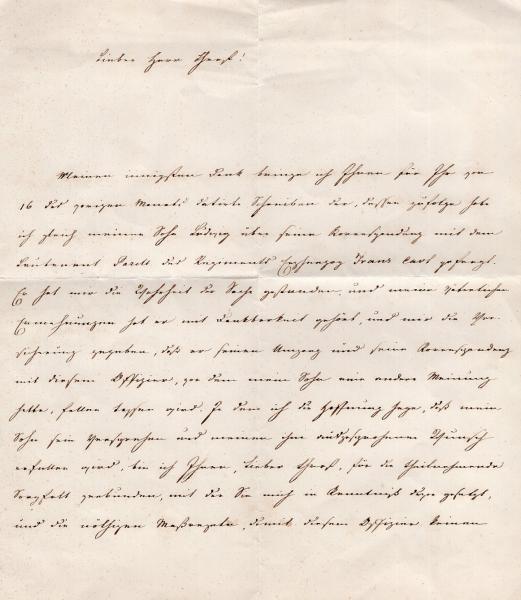 Lieber Herr Graf!
Meinen innigsten Dank bringe ich Ihnen für Ihr vom
16 des vorigen Monats datirte Schreiben dar, dessen zufolge habe
ich gleich meinen Sohn Ludwig über seine Korrespondenz mit dem
Lieutenant des Regiments Erzherzog Franz Carl gefragt.
Er hat mir die der Sache gestanden, und meine väterlichen
Ermahnungen hat er mit Dankbarkeit gehört, und mir die Ver-
sicherung gegeben, daß er seinen Umgang und seine Korrespondenz
mit diesem Offizier, von dem mein Sohn eine andere Meinung
hatte, fallen lassen wird. In dem ich die Hoffnung hege, daß mein
Sohn sein Versprechen und meinen ihm ausgesprochenen Wunsch
erfüllen wird, bin ich Ihnen, lieber Graf, für die theilnehmende
Sorgfalt verbunden, mit der Sie mich in Kenntniß dazu gesetzt,
und die nöthigen Maßregeln, damit diesem Offizier keinen